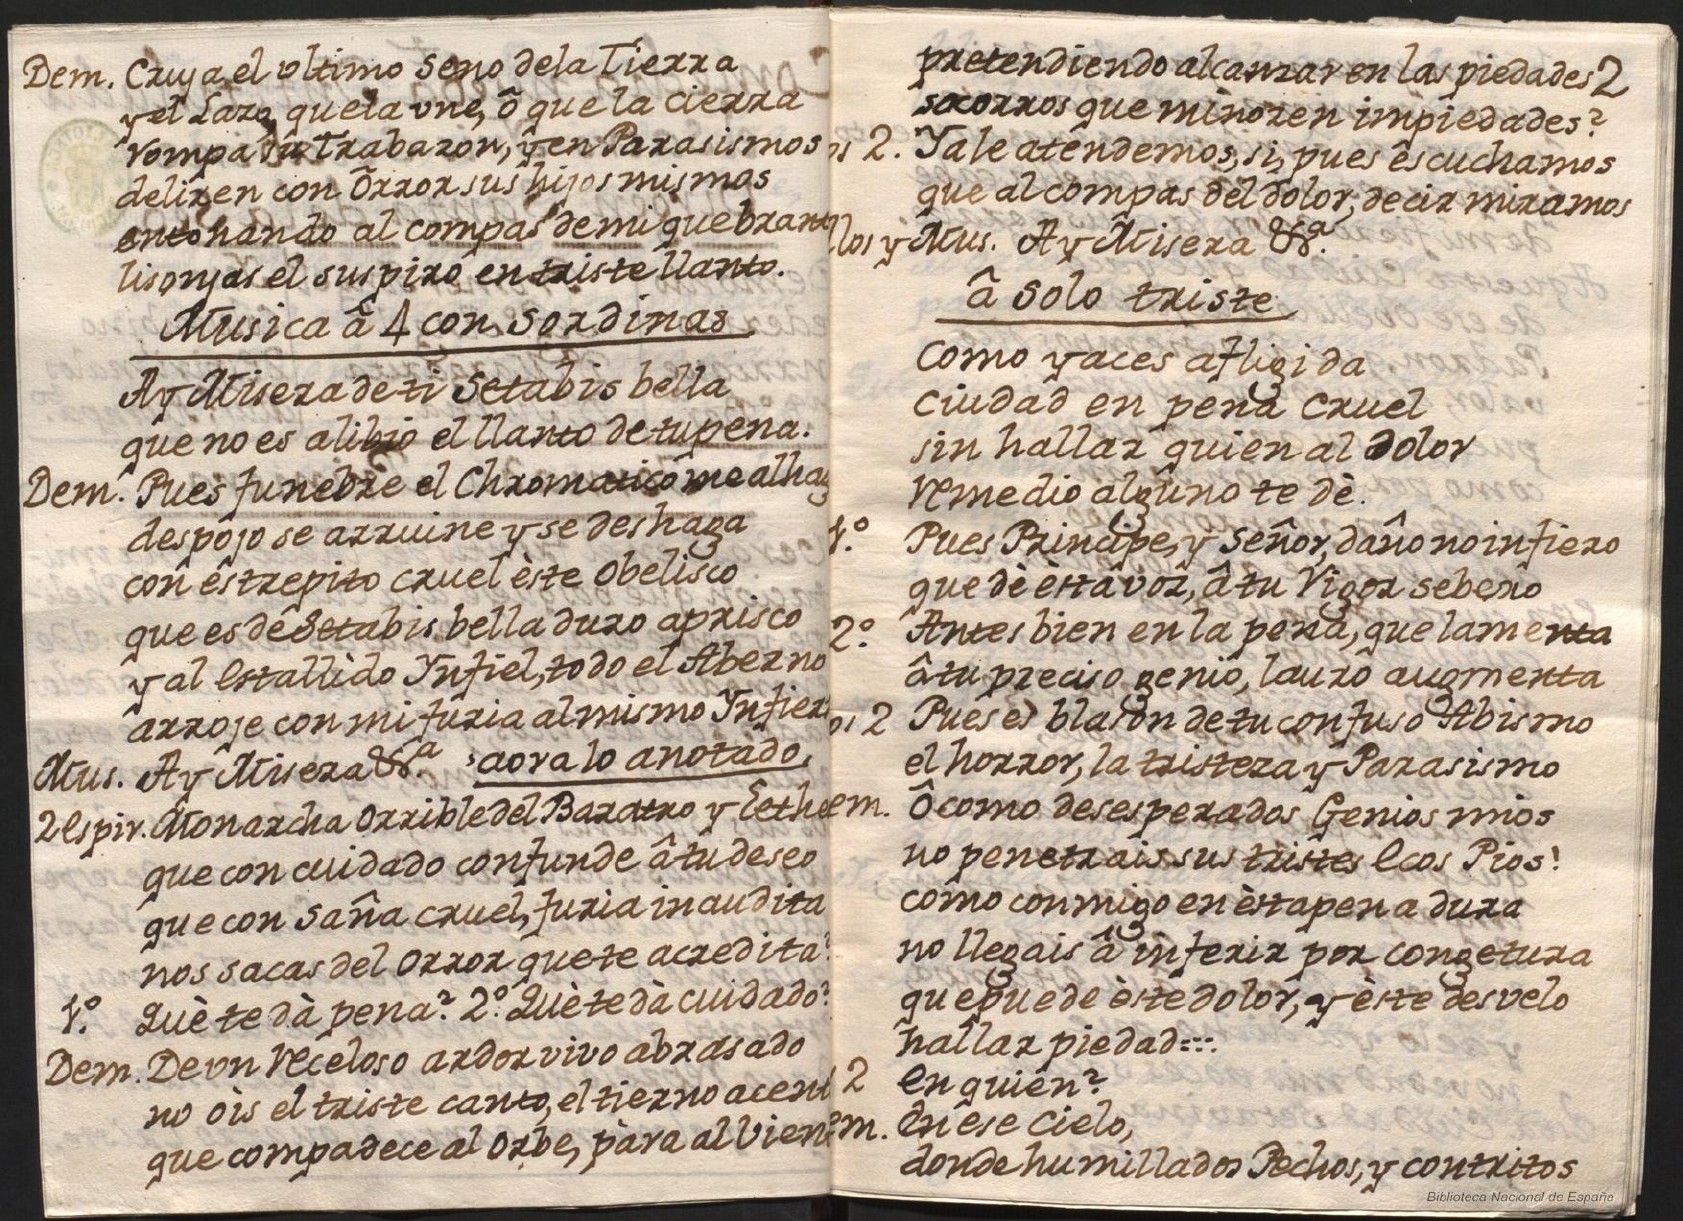 Dem. Cruja el vltimo Seno dela Tierra
y el Lazo, que la vne, ô que la cierra
rompa su Trabazon, y en Parasismos
deliren con Ôrror sus hijos mismos
entonando al compas de mi quebrant
lisonjas el suspiro en triste llanto.
Musica â 4 con Sordinas
Ay Misera de ti Setabis bella
que no es alibio el llanto de tu pena.
Dem. Pues funebre el Chromatico me alhag
despojo se arruine y se deshaga
con êstrepito cruel èste Obelisco
que es de Setabis bella duro aprisco
y al Estallido Ynfiel, todo el Aberno
arroje con mi furia al mismo Ynfier
Mus. Ay Misera &ª. aora lo anotado.
2 espir. Monarcha Orrible del Baratro y Letheo
que con cuidado confunde â tu deseo
que con Saña cruel, furia inaudita
nos sacas del Orror que te acredita?
1.º Quète dà pena? 2.º Quète dà cuidado?
Dem. De vn Receloso ardor vivo abrasado
no ôis el triste canto, el tierno acent
que compadece al Orbe, pàra al Vien
pretendiendo alcanzar en las piedades 2
socorros que minoren impiedades?
os 2. Ya le atendemos, si, pues êscuchamos
que al compas del dolor, decir miramos
llos y Mus. Ay Misera &ª.
â Solo triste
Como yaces afligida
Ciudad en pena Cruel
sin hallar quien al Dolor
Remedio alguno te dè.
1.º Pues Principe, y Señor, daño no infiero
que dè èsta voz, â tu Vigor Sebero
2.º Antes bien en la pena, que lamenta
â tu preciso genio, lauro augmenta
os 2 Pues es blason de tu confuso Abismo
el horror, la tristeza y Parasismo
em. Ô como desesperados Genios mios
no penetrais sus tristes Ecos Pios!
como conmigo en èsta pena dura
no llegais â inferir por congetura
que puede èste dolor, y èste desvelo
hallar piedad=::
2 en quien?
m. En êse Cielo,
donde humillados Pechos, y contritos
Biblioteca Nacional de España